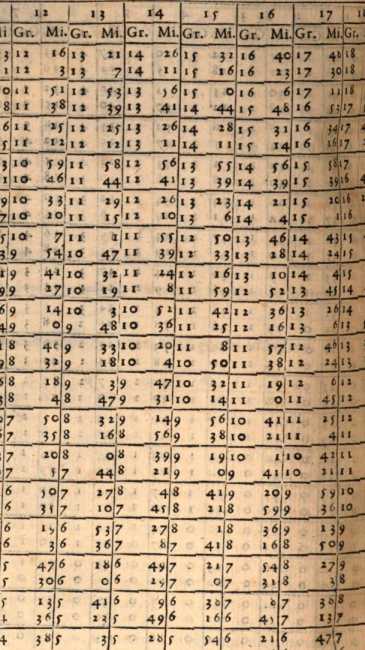 12 13 14 15 16 17
Mi. Gr. Mi. Gr. Mi. Gr. Mi. Gr. Mi. Gr. Mi. Gr.
12 16 13 21 14 26 15 32 16 40 17 48 18
12 3 13 7 14 11 15 16 16 23 17 30 18
11 51 12 53 13 56 15 0 16 6 17 11 18
11 38 12 39 13 41 14 44 15 48 16 53 17
11 25 12 25 13 26 14 28 15 31 16 34 17
11 12 12 12 13 11 14 11 15 14 16 16 17
10 59 11 58 12 56 13 55 14 56 15 58 17
10 46 11 44 12 41 13 39 14 39 15 39 16
10 33 11 29 12 26 13 23 14 21 15 20 16
10 20 11 15 12 10 13 6 14 4 15 1 16
10 7 11 1 11 55 12 50 13 46 14 43 15
9 54 10 47 11 39 12 33 13 28 14 24 15
9 41 10 32 11 24 12 16 13 10 14 4 15
9 27 10 19 11 8 11 59 12 52 13 45 14
9 14 10 3 10 52 11 42 12 36 13 26 14
9 0 9 48 10 36 11 25 12 16 13 6 13
8 46 9 33 10 20 11 8 11 57 12 46 13
8 32 9 18 10 4 10 50 11 38 12 24 13
8 18 9 3 9 47 10 32 11 19 12 6 12
8 4 8 47 9 31 10 14 11 0 11 45 12
7 50 8 32 9 14 9 56 10 41 11 25 12
7 35 8 16 8 56 9 38 10 21 11 4 11
7 20 8 0 8 39 9 19 10 1 10 42 11
7 5 7 44 8 21 9 0 9 41 10 21 11
6 50 7 27 8 4 8 41 9 20 9 59 10
6 35 7 10 7 45 8 21 8 59 9 36 10
6 19 6 53 7 27 8 1 8 36 9 13 9
6 3 6 36 7 8 7 41 8 16 8 50 9
5 47 6 18 6 49 7 21 7 54 8 27 9
5 30 6 0 6 29 7 0 7 31 8 3 8
5 13 5 41 6 9 6 38 7 8 7 38 8
4 36 5 23 5 49 6 16 6 45 7 13 7
4 38 5 3 5 28 5 54 6 21 6 47 7